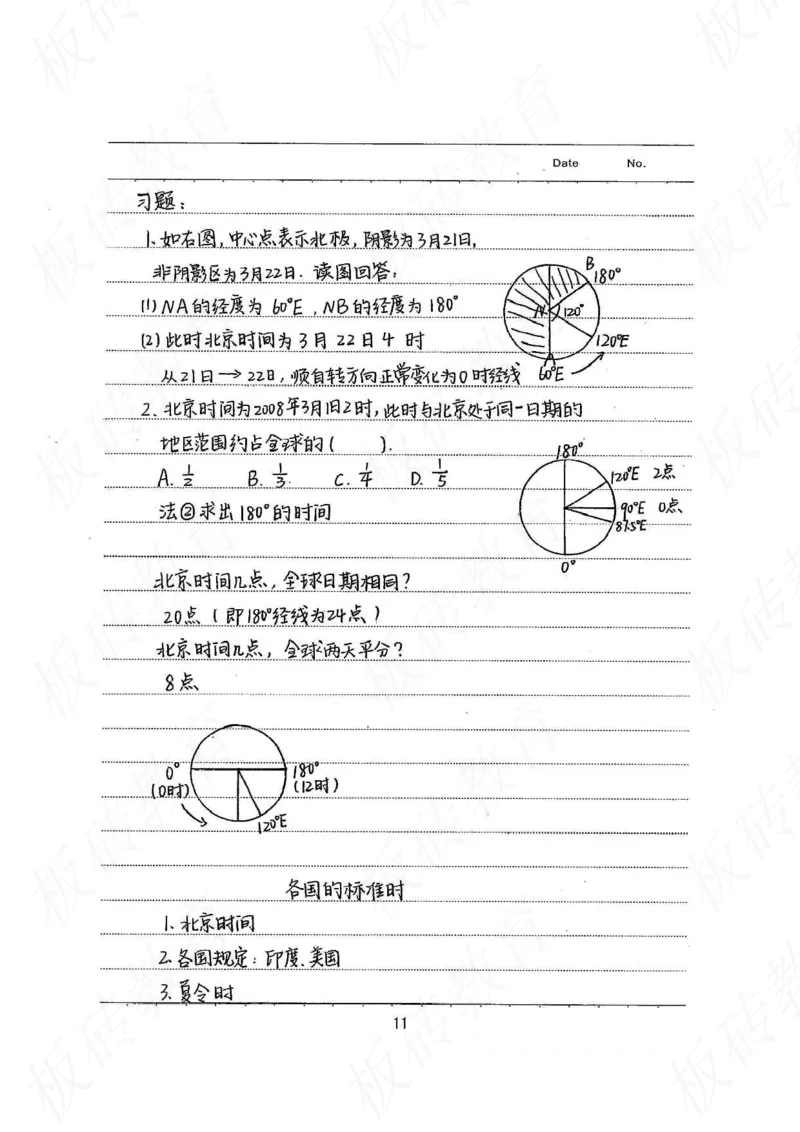 Date No.
习题：
1、如右图，中心点表示北极，阴影为3月21日，
非阴影区为3月22日．读图回答：
B
180°
N
120°
120°E
A
60°E
(1) NA的经度为 60°E ，NB的经度为 180°
(2) 此时北京时间为 3 月 22 日 4 时
从21日→22日，顺自转方向正常变化为0时经线
2、北京时间为2008年3月1日2时，此时与北京处于同一日期的
地区范围约占全球的（ ）．
A. 1/2 B. 1/3 C. 1/4 D. 1/5
法②求出180°的时间
180°
120°E 2点
90°E 0点
87.5°E
0°
北京时间几点，全球日期相同？
20点（即180°经线为24点）
北京时间几点，全球两天平分？
8点
0°
(0时)
180°
(12时)
120°E
各国的标准时
1、北京时间
2、各国规定：印度、美国
3、夏令时
11
板砖教育